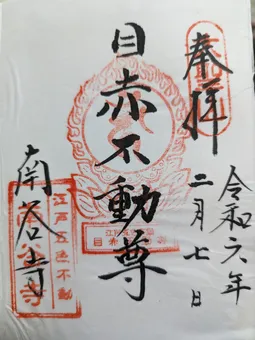 奉拝
令和六年
二月七日
目赤不動尊
江戸五色不動
南谷寺